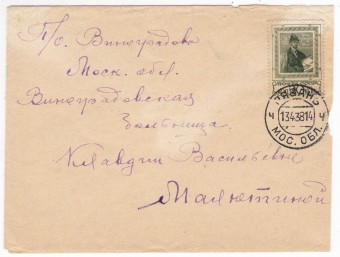 П/о. Виноградово
Моск. обл.
Виноградовская
Больница.
Клавдии Васильевне
Малютиной
РЯЗАНЬ
Ч 1343814 Ч
МОС. ОБЛ.